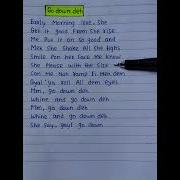 Go down deh
Early Morning love, she
Get it good From She rise
Me Put it on so good and
Mek She Shake All She thighs
Smile Pon her Face Me Know
She Please with the Size
Con Me Not Romp Fi Men dem
Gyal ya Tell All dem lies
Mm, go down deh
Whine and go down deh
Mm, go down deh
Whine and go down deh
She Say, yayi go down